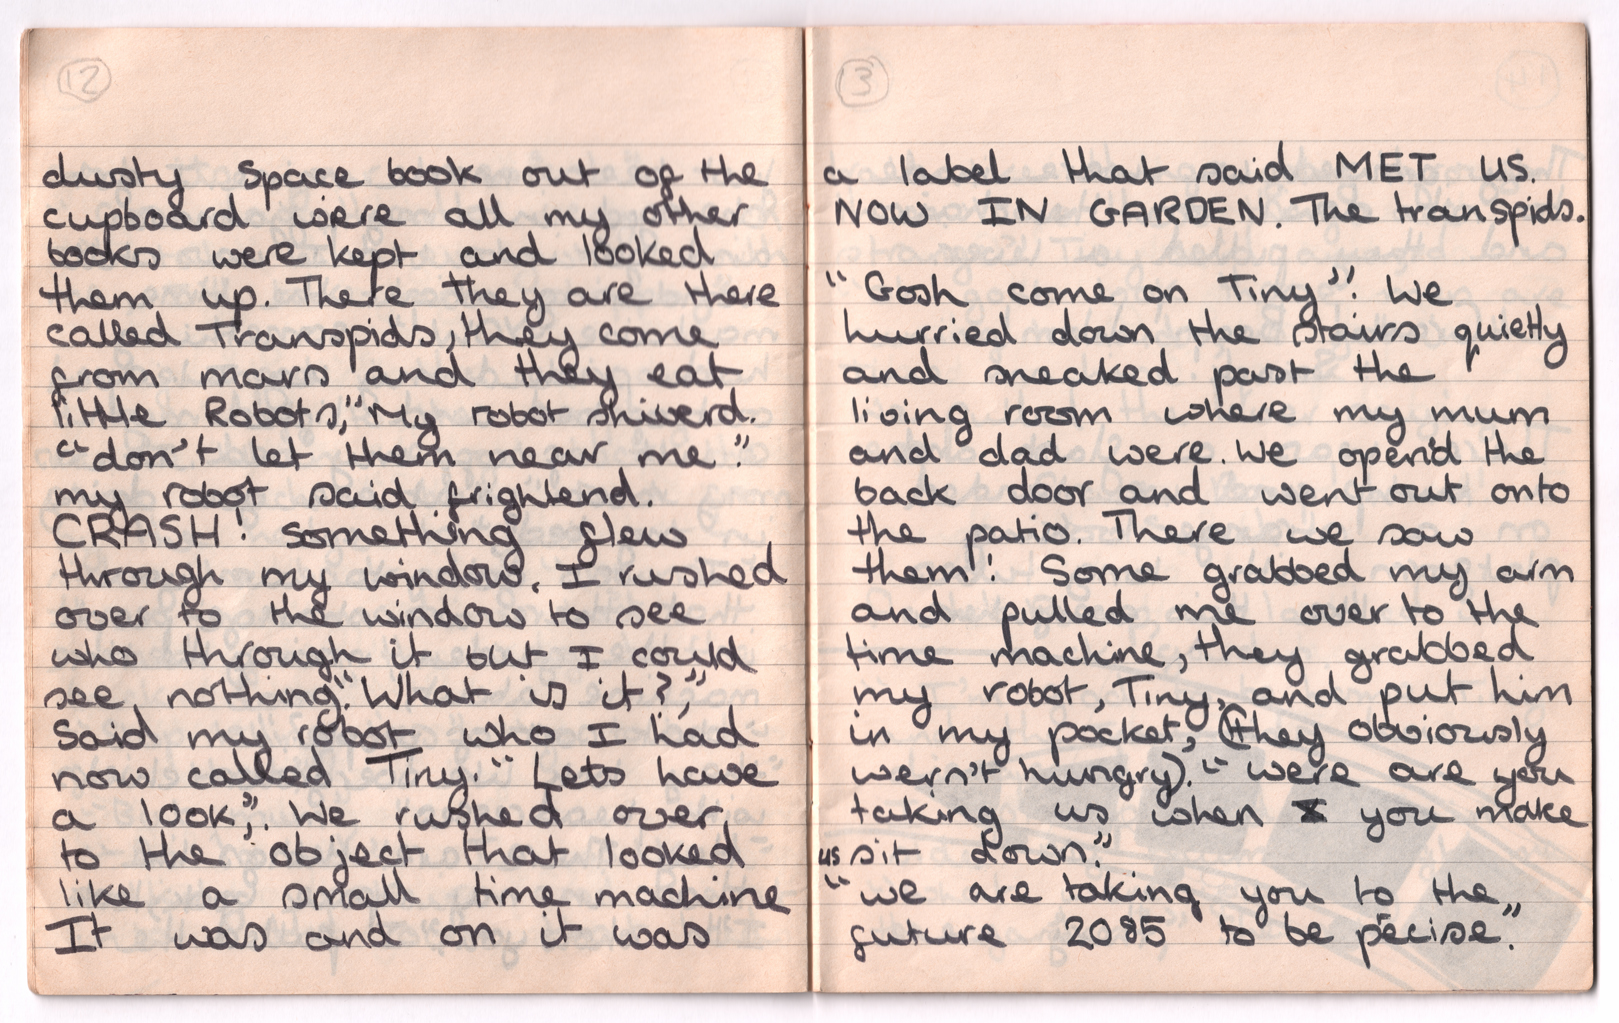 12
dusty Space book out of the
cupboard were all my other
books were kept and looked
them up. There they are there
called Transpids, they come
from mars and they eat
little Robots," My robot shiverd.
"don't let them near me."
my robot said frightend.
CRASH! something flew
through my window. I rushed
over to the window to see
who through it but I could
see nothing. "What is it?",
Said my robot who I had
now called Tiny. "Lets have
a look,". We rushed over
to the object that looked
like a small time machine
It was and on it was
13
a label that said MET US.
NOW IN GARDEN. The transpids.
"Gosh come on Tiny"! We
hurried down the stairs quietly
and sneaked past the
living room where my mum
and dad were. We open'd the
back door and went out onto
the patio. There we saw
them! Some grabbed my arm
and pulled me over to the
time machine, they grabbed
my robot, Tiny, and put him
in my pocket, (they obviously
wern't hungry). "were are you
taking us when you make
us sit down."
"we are taking you to the
future 2085 to be pecise."